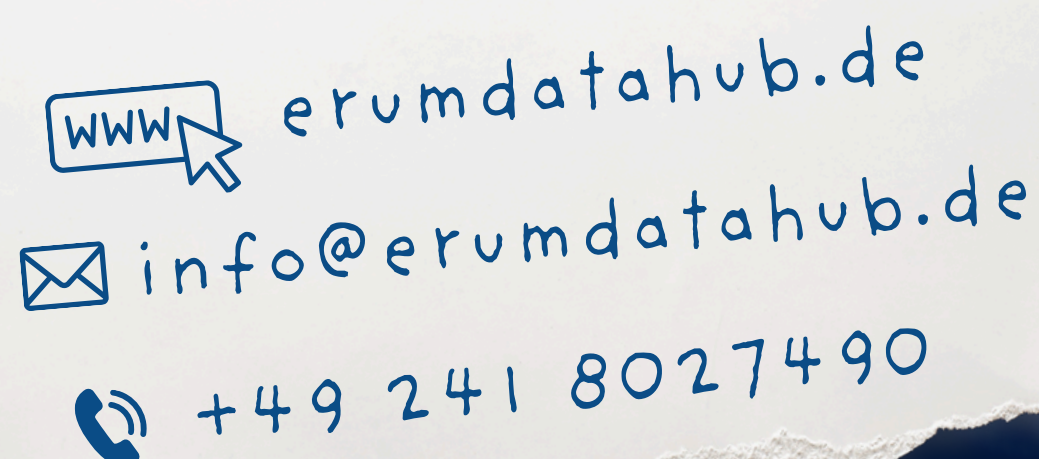 www erumdatahub.de
info@erumdatahub.de
+49 241 8027490